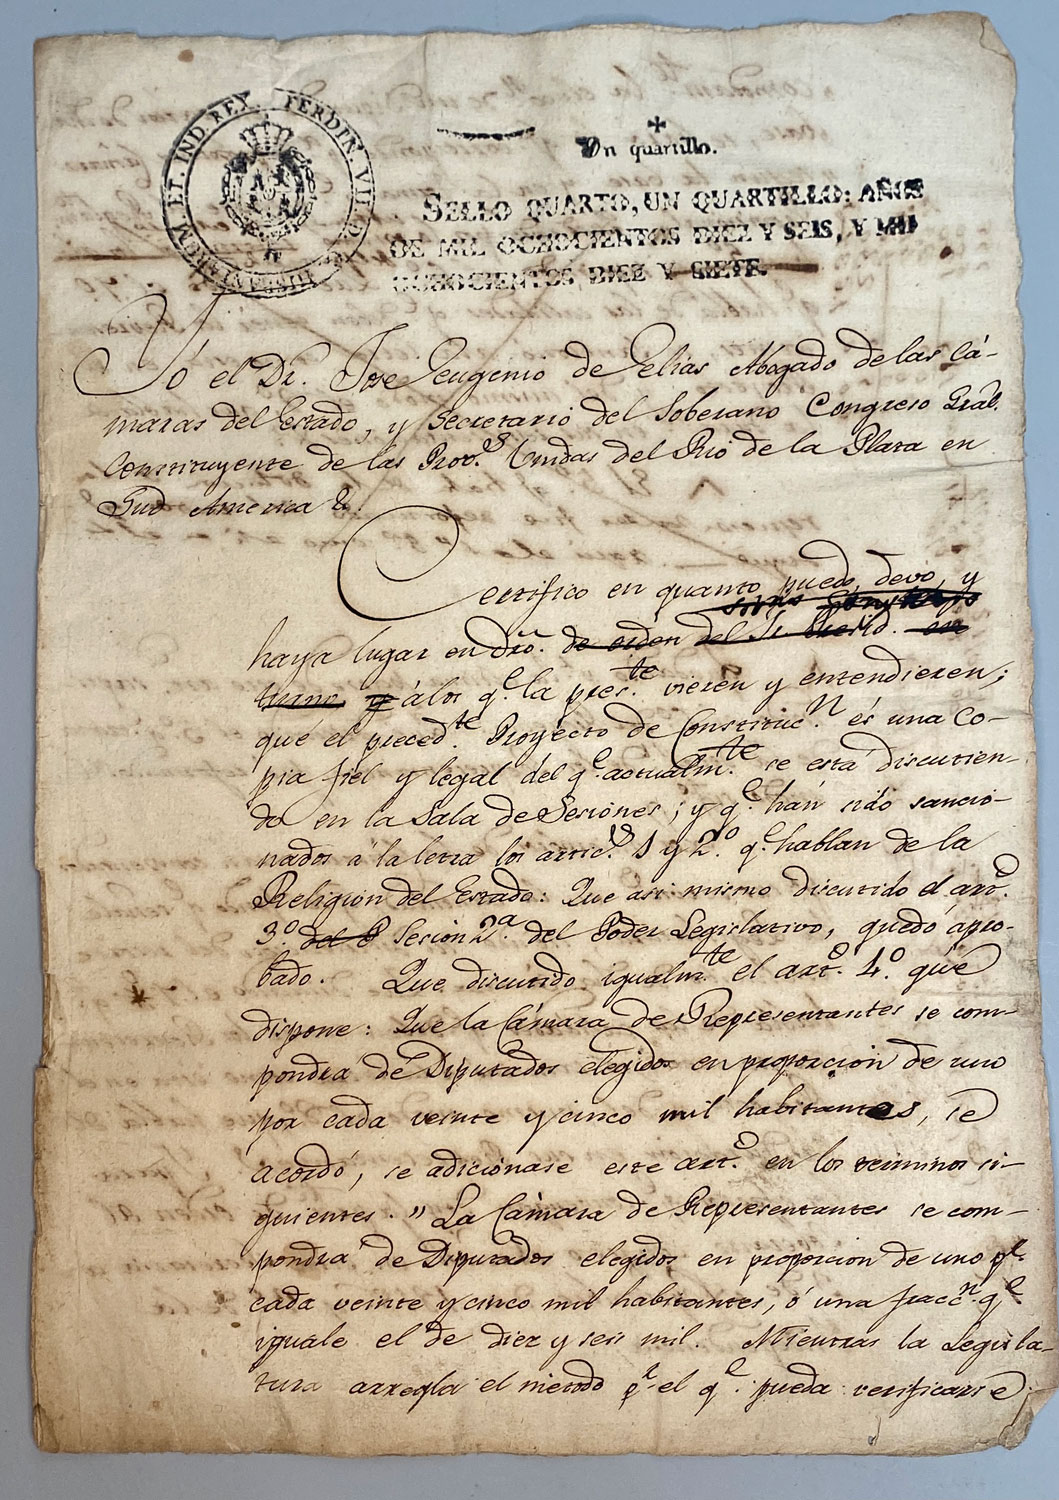 FERDIN. VII. D. G. HISPANIARUM ET IND. REX.
Un quartillo.
SELLO QUARTO, UN QUARTILLO: AÑOS
DE MIL OCHOCIENTOS DIEZ Y SEIS, Y MIL
OCHOCIENTOS DIEZ Y SIETE.
Yo el Dr. José Eugenio de Elias Abogado de las Cá-
maras del Estado, y Secretario del Soberano Congreso Gral.
Constituyente de las Prov.s Unidas del Rio de la Plata en
Sud America &.
Certifico en quanto puedo, devo, y
haya lugar en dro. de orden del
turno y á los q.e la pres.te vieren y entendieren;
que el preced.te Proyecto de Constituc.n és una co-
pia fiel y legal del q.e actualm.te se está discutien-
do en la Sala de Sesiones; y q.e hán sido sancio-
nados á la letra los artic.s 1 y 2.o q.e hablan de la
Religion del Estado: Que asi mismo discutido el art.o
3.o del P Sesion 2.a del Poder Legislativo, quedó apro-
bado. Que discutido igualm.te el art.o 4.o que
dispone: Que la Cámara de Representantes se com-
pondrá de Diputados elegidos en proporcion de uno
por cada veinte y cinco mil habitantes, se
acordó, se adicionase este art.o en los terminos si-
guientes. " La Cámara de Representantes se com-
pondrá de Diputados elegidos en proporcion de uno p.r
cada veinte y cinco mil habitantes, ó una fracc.n q.e
iguale el de diez y seis mil. Mientras la Legisla-
tura arregla el metodo p.r el q.e pueda verificarse